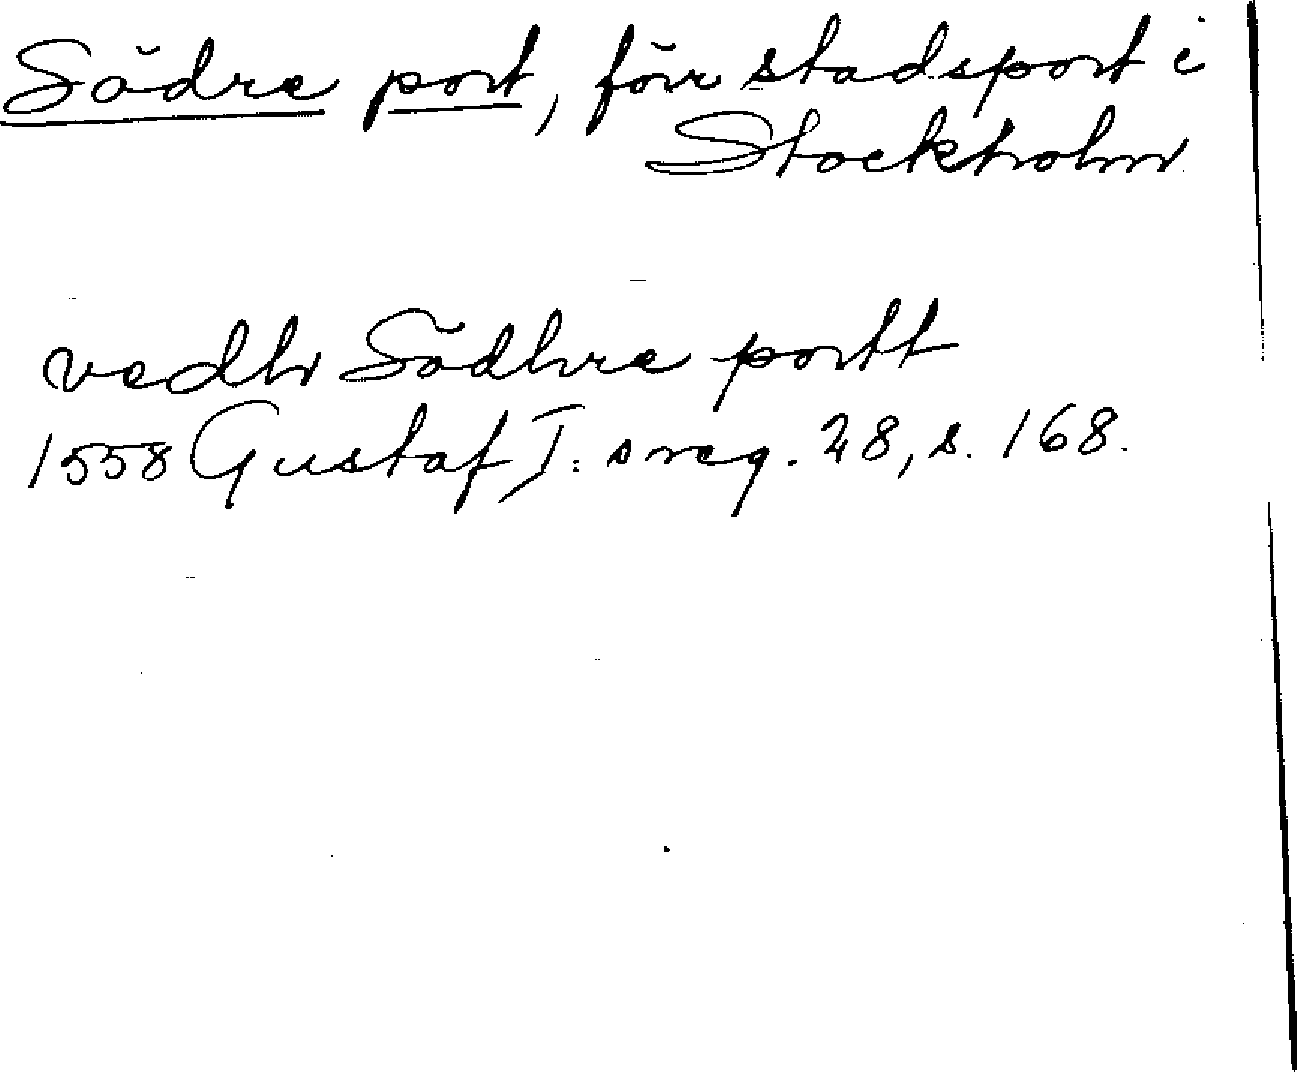 Södre port, förr stadsport i
Stockholm
vedh Södhre portt
1558 Gustaf I:s reg. 28, s. 168.